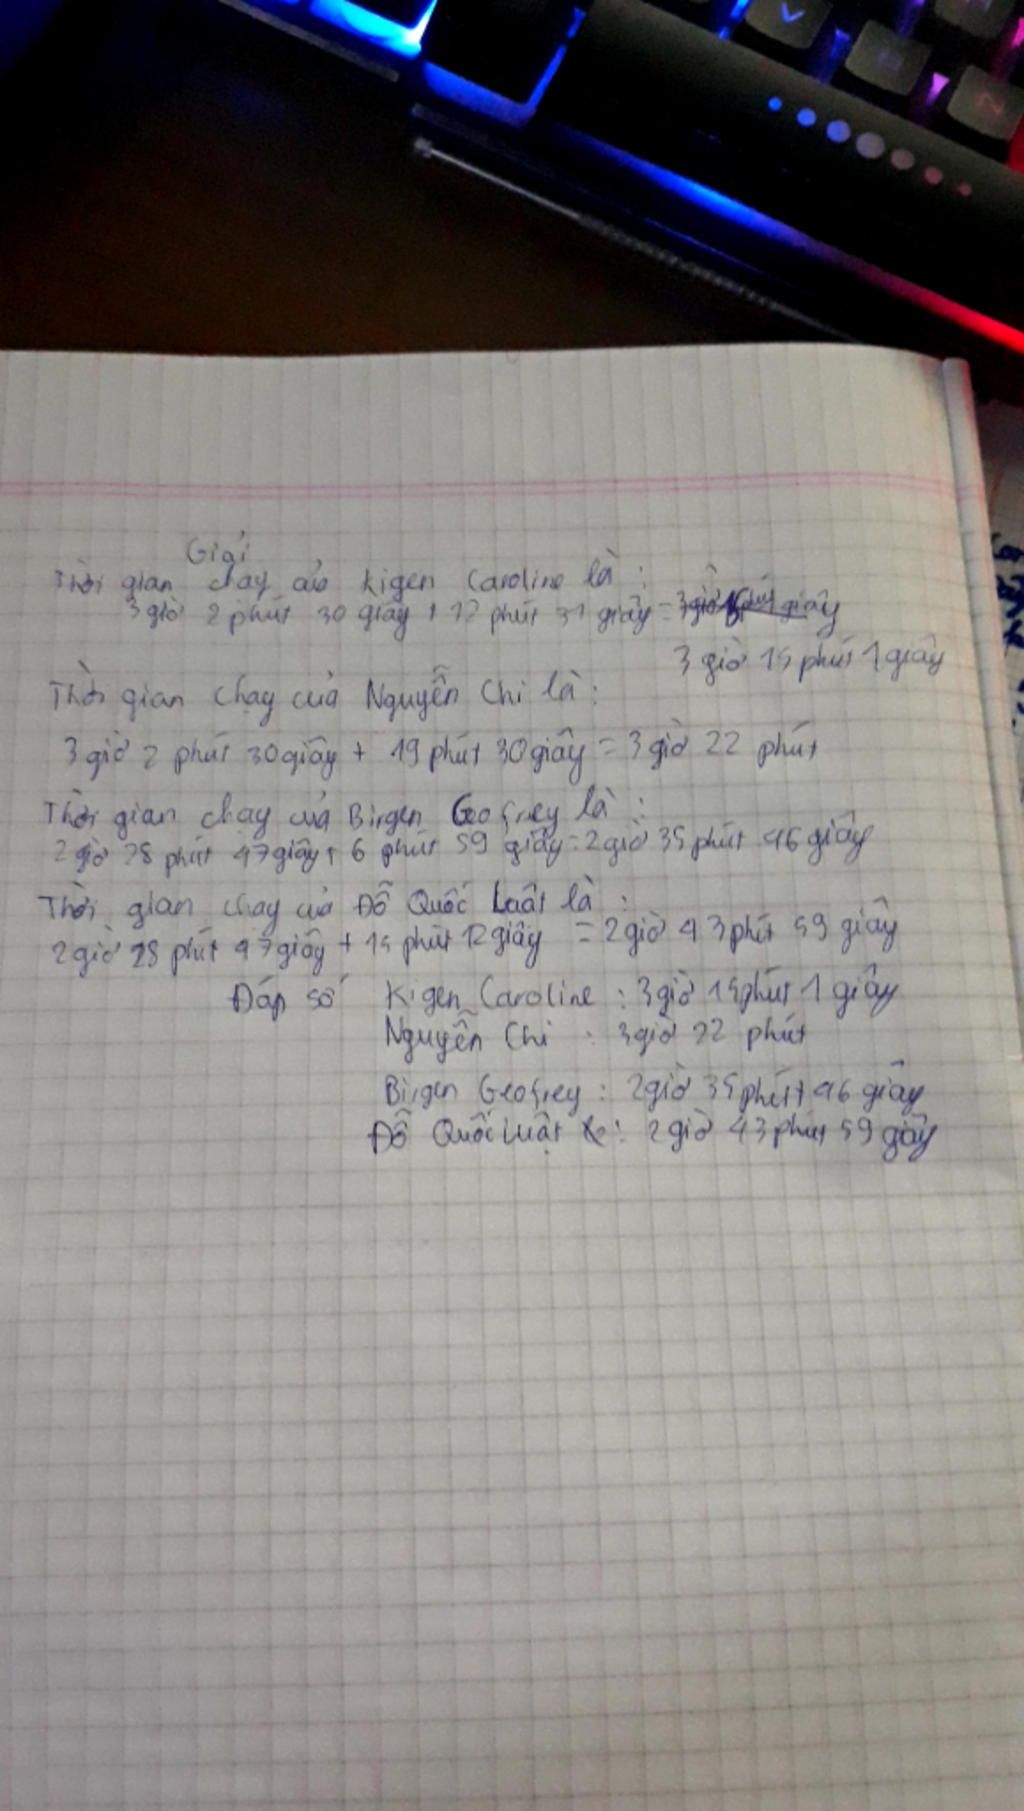 Giải
Thời gian chạy của Kigen Caroline là :
3 giờ 2 phút 30 giây + 12 phút 31 giây =
3 giờ 15 phút 1 giây
Thời gian chạy của Nguyễn Chi là :
3 giờ 2 phút 30 giây + 19 phút 30 giây = 3 giờ 22 phút
Thời gian chạy của Birgen Geofrey là :
2 giờ 28 phút 47 giây + 6 phút 59 giây = 2 giờ 35 phút 46 giây
Thời gian chạy của Đỗ Quốc Luật là :
2 giờ 28 phút 47 giây + 15 phút 12 giây = 2 giờ 43 phút 59 giây
Đáp số Kigen Caroline : 3 giờ 15 phút 1 giây
Nguyễn Chi : 3 giờ 22 phút
Birgen Geofrey : 2 giờ 35 phút 46 giây
Đỗ Quốc Luật : 2 giờ 43 phút 59 gây